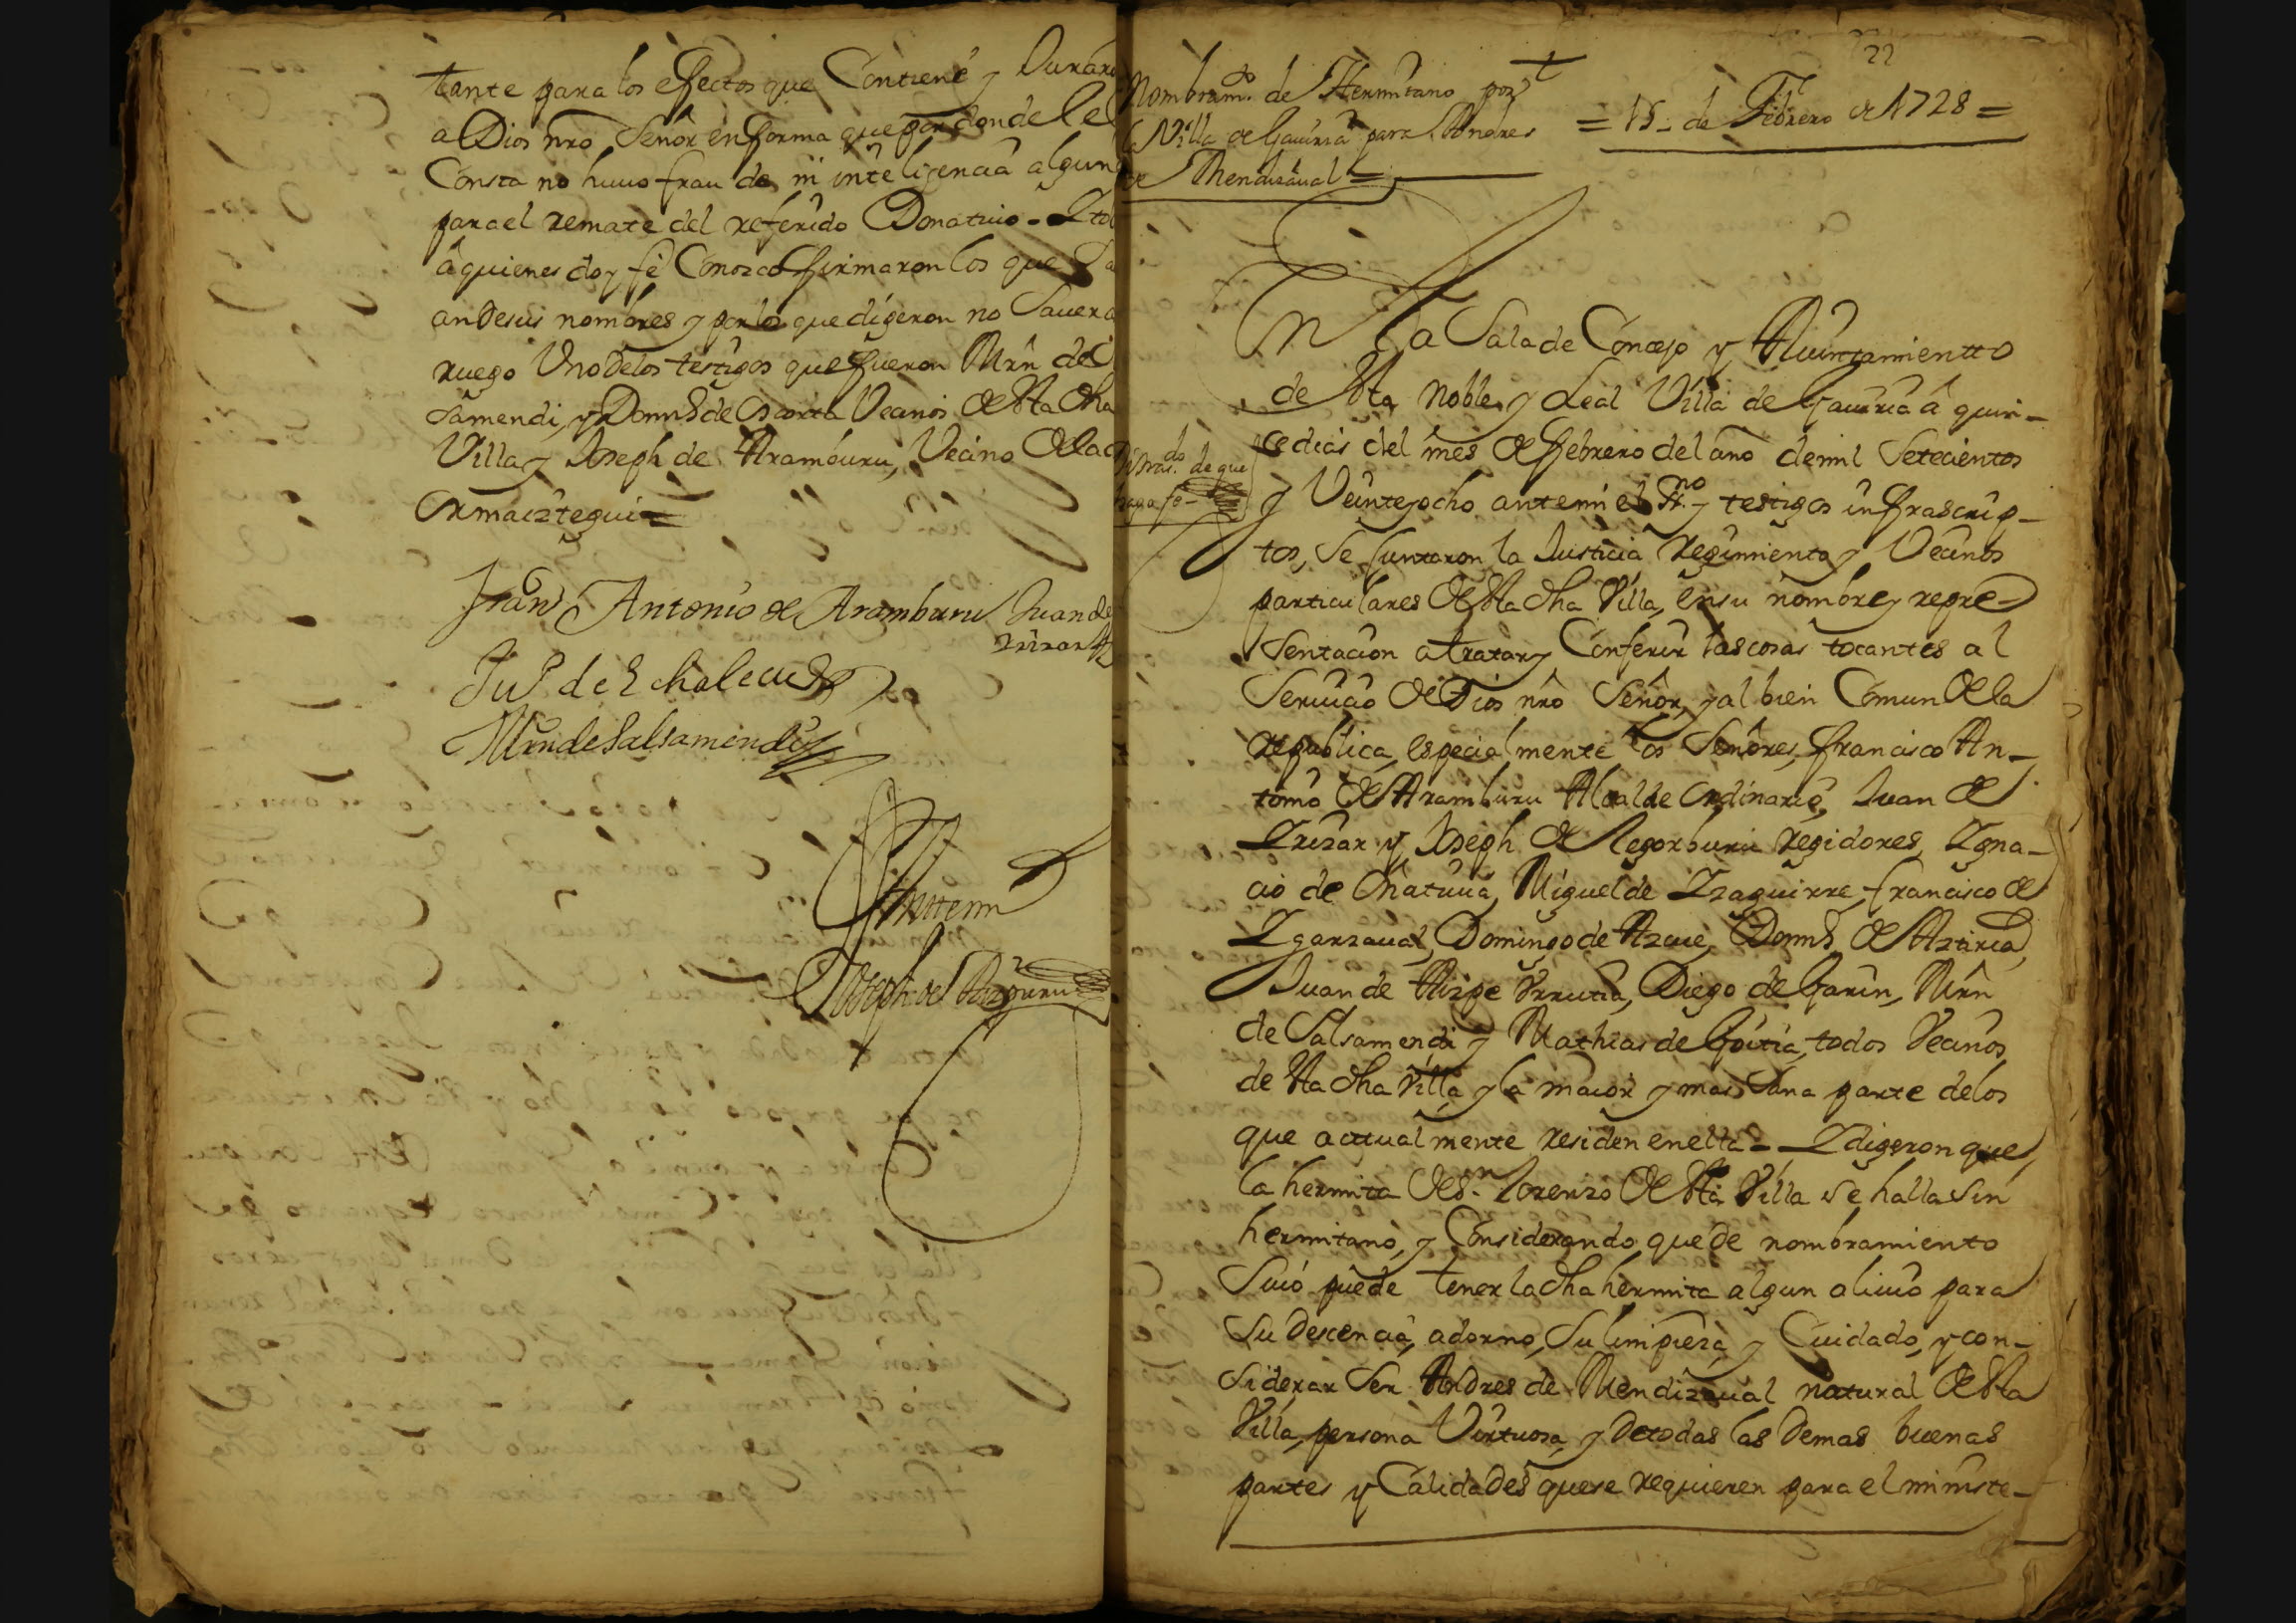 tante para los efectos que Contiene y Juraro
a Dios nro Señor en forma que por donde le el
Consta no huuo fraude ni inteligencia alguna
para el remate del referido Donatiuo - Y to
a quienes doy fe Conozco firmaron los que Sa
an De sus nombres y por los que digeron no Sauer a
ruego Uno De los testigos que fueron Mrn de
Samendi, y Domos de Ascorta Vecinos de Sta dha
Villa y Joseph de Aramburu, Vecino de la
Ormaiztegui =
Franco Antonio de Aramburu Juan de
Yrizar
Juo de Echalecu
Mrn de Salsamendi
Ante mi
Joseph de
22
Nombramto de Hermitano por
la Villa de Gauiria para Andres
de Mendizaual =
= 15 - de Febrero de 1728 =
En La Sala de Concejo y Aiuntamientto
de Sta Noble y Leal Villa de Gauiria a quin-
ce dias del mes de febrero del año de mil Setecientos
y Veinte y ocho ante mi el Sno y testigos infrascrip-
tos, Se Juntaron la Justicia regimiento y Vecinos
particulares de Sta dha Villa, en su nombre y repre-
sentacion a tratar y Conferir las cosas tocantes al
Seruicio de Dios nro Señor, y al bien Comun de la
republica, especialmente los Señores, francisco An-
tonio de Aramburu Alcalde ordinario, Juan de
Yrizar y Joseph de Legorburu regidores, Ygna-
cio de Oñatiuia, Miguel de Yzaguirre, francisco de
Ygarzaual, Domingo de Azcue, Domos de Aztiria,
Juan de Aizpe Urrutia, Diego de Garin, Mrn
de Salsamendi y Mathias de Goitia, todos Vecinos
de Sta dha Villa y la maior y mas Sana parte de los
que actualmente residen en ella - Y digeron que
la hermita de Sn Lorenzo de Sta Villa se halla sin
hermitano, y Considerando que de nombramiento
Suio puede tener la dha hermita algun aliuio para
Su Decencia, adorno, Su limpieza y Cuidado, y con-
siderar Ser Andres de Mendizaual natural de Sta
Villa, persona Virtuosa, y De todas las Demas buenas
partes y Calidades que se requieren para el ministe-